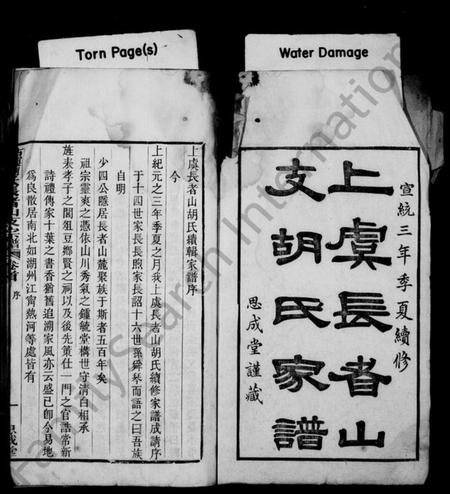 Torn Page(s)
Water Damage
宣統三年季夏續修
上虞長者山
支胡氏家譜
思成堂謹藏
上虞長者山胡氏續輯家譜序
今
上紀元之三年季夏之月我上虞長者山胡氏續修家譜成請序
于十四世家長長煦家長詔十六世孫舜琴而語之曰吾族
自明
少四公隱居長者山麓聚族于斯者五百年矣
祖宗靈爽之憑依山川秀氣之鍾毓堂構世守清白相承
旌表孝子之閭俎豆鄉賢之祠以及後先董仕一門之官誥常新
詩禮傳家十葉之書香猶舊追溯家風亦云盛已卽今易地
爲良散居南北如湖州江甯熱河等處皆有
序
FamilySearch International